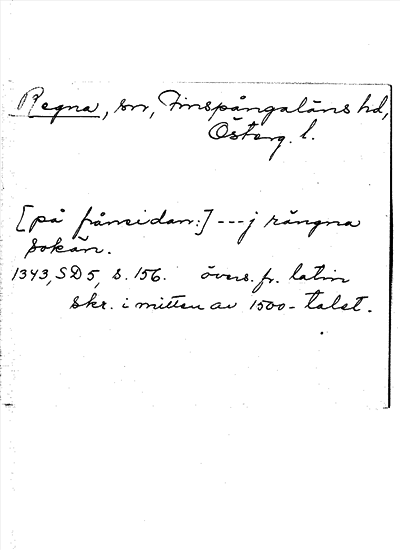 Regna, sn, Finspångaläns hd,
Österg. l.
[på frånsidan:] --- j rångna
sokän.
1343, SD 5, s. 156. övers. fr. latin
skr. i mitten av 1500-talet.